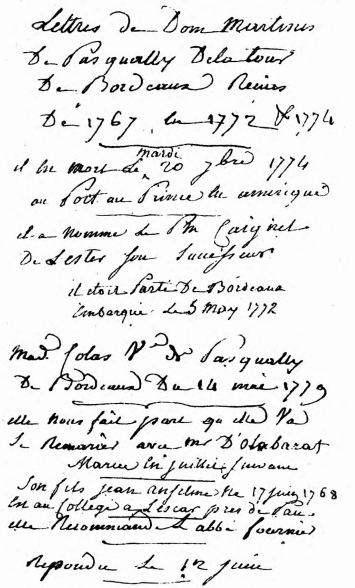 Lettres de Dom Martines
De Pasqually Delatour
De Bordeaux Reçues
De 1767 en 1772 & 1774
il Est mort Le mardi 20 7bre 1774
au Port au Prince En amerique
il a nommé Le Pm Caignet
De Lester Son Successeur
il etoit Parti De Bordeaux
Embarqué Le 5 May 1772
Mad. Colas Ve De Pasqually
De Bordeaux Du 14 mai 1779
elle nous fait part qu'elle Va
Se Remarier avec mr D'Olabarat
Mariée En juillet Suivant
Son fils jean anselme Né 17 juin 1768
Est au College a Lescar pres de Pau
elle Recommande L'abbé fournier
repondu Le 1er juin